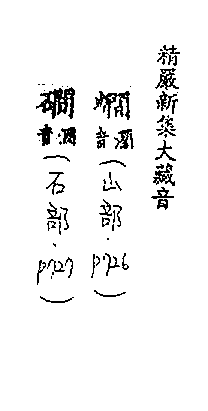 精嚴新集大藏音
音澗(山部.p726)
礀音澗(石部.p727)